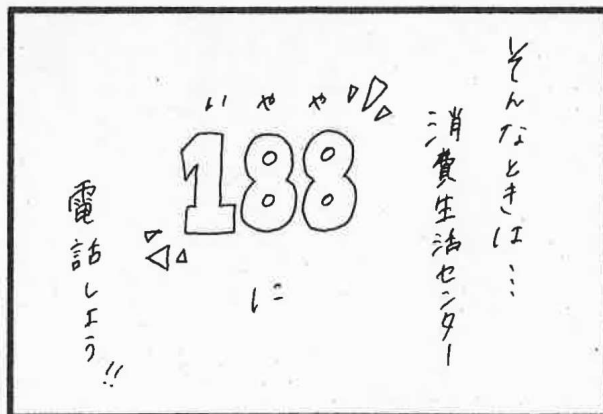 そんなときは…
消費生活センター
いやや
188
に
電話しよう!!